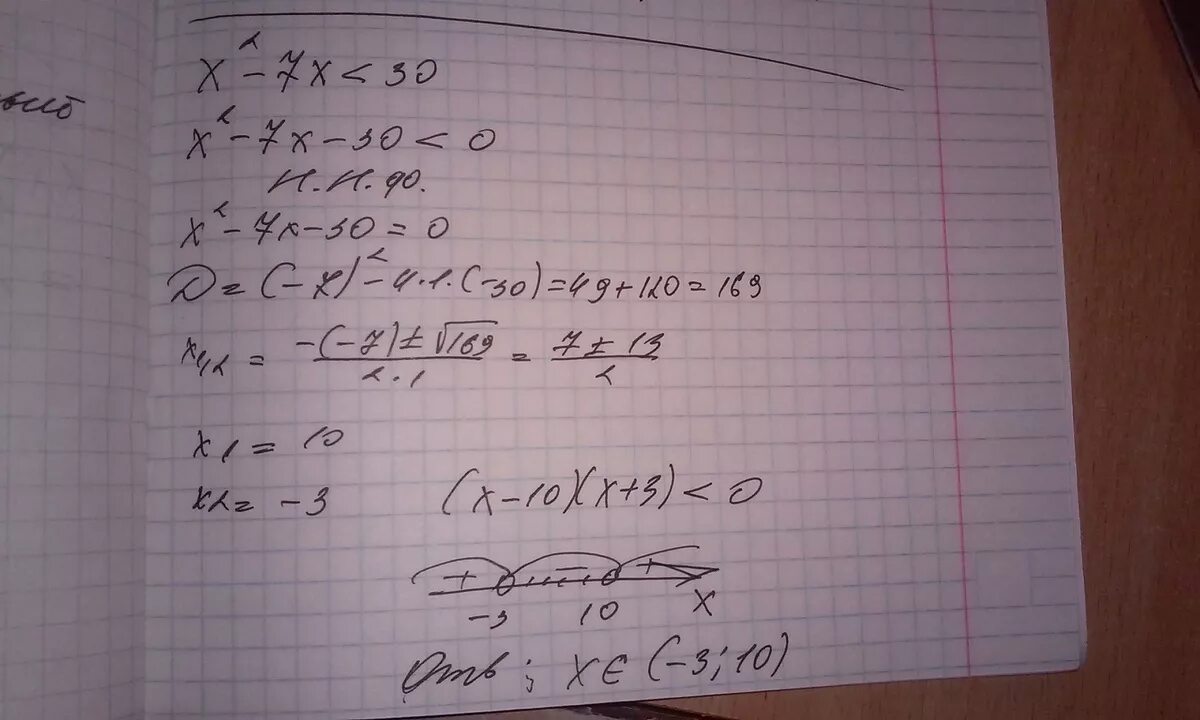 x² - 7x < 30
x² - 7x - 30 < 0
Н.Н.фо.
x² - 7x - 30 = 0
D = (-7)² - 4·1·(-30) = 49 + 120 = 169
x₁,₂ = (-(-7) ± √169)/(2·1) = (7 ± 13)/2
x₁ = 10
x₂ = -3 (x-10)(x+3) < 0
+ - +
-3 10 x
Отв; x ∈ (-3; 10)